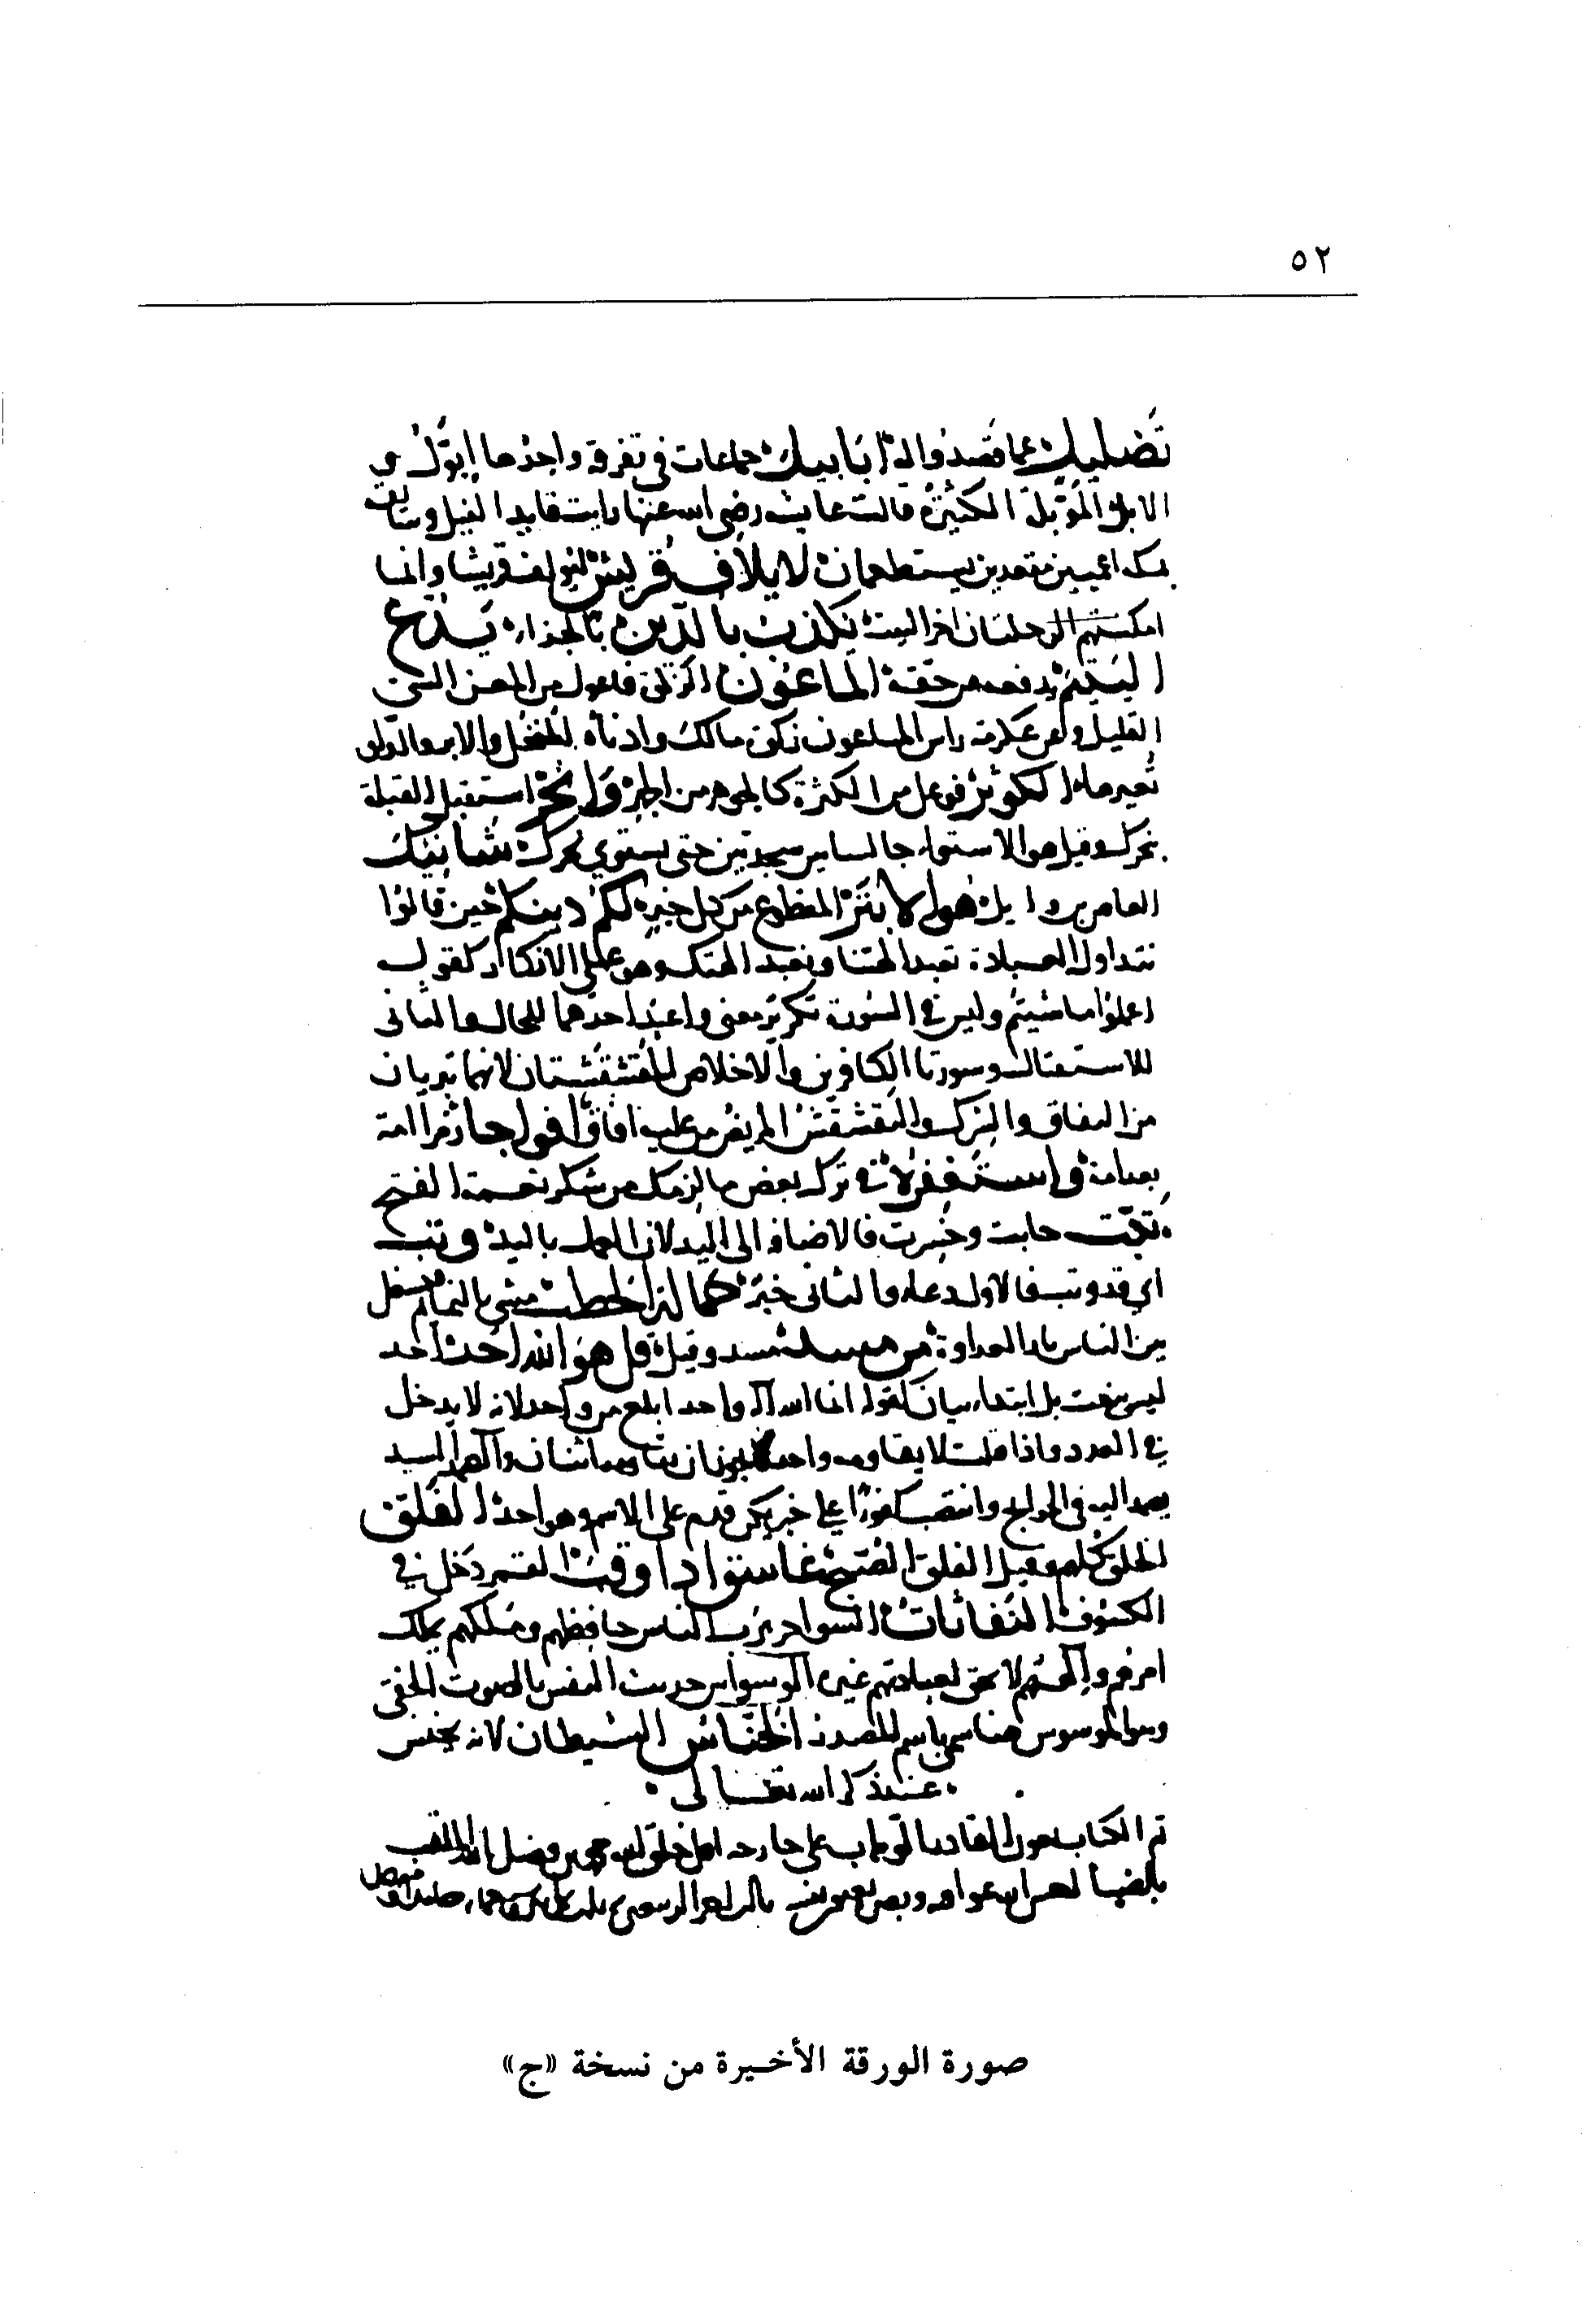 ٥٢
تَضليل عما قصدوا له أبابيل جماعات في تفرقه واحدها إبّول من
الابل المؤبلة الكثيرة قالت عايشه رضي الله عنها رايت قايد الفيل وسايقه
بمكه اعميين مقعدين يستطعمان لايلاف قريش ليؤلف قريشا وانما
امكنتهم الرحلتان اخر البيت يكذب بالدين بالجزاء يدع
اليتيم يدفعه عن حقه الماعون الزكوة فاعول من المعن الشي
القليل وعن عكرمة راس الماعون زكوة مالك وادناه المنخل والابره والدلو
تعيرها الكوثر فوعل من الكثرة كالجوهر من الجهر وانحر استقبل القبلة
بنحرك وقيل هو الاستواء جالسا بين سجدتين حتى يستوي نحرك شانيك
العاص بن وايل هو الابتر المنقطع عن كل خير لكم دينكم حين قالوا
نتداول العبادة تعبد الهتنا ونعبد الهك وهو على الانكار كقوله
اعملوا ما شيتم وليس في السورة تكرير معنى واعبد احدهما للحال والثاني
للاستقبال وسورتا الكافرين والاخلاص المقشقشتان لانهما تبريان
من النفاق والشرك والتقشقش المريض من عليه افاق افواجا زمرا امة
بعد امة واستغفره في ترك بعض ما لزمك من شكر نعمة الفتح
تبّت خابت وخسرت فالاضافة الى اليد لان العمل باليد وتب
اي وقد وتب فالاول دعاء والثاني خبر حمالة الحطب تمشي بالنمايم فتشعل
بين الناس نار العداوة من مسد وقيل قل هو الله احد احد
ليس بنعت بل ابتداء بيان كقوله انما الله اله واحد ابلغ من واحد لانه لا يدخل
في العدد واذا قلت لا يقاومه واحد يجوز ان يقاومه اثنان والصمد السيد
يصمد اليه في الحوايج وانتصب كفوا على خبر يكن قدم على الاسم وهو احد الفلق
الخلق كلهم وقيل الفلق الصبح غاسق اذا وقب القمر دخل في
الكسوف النفاثات السواحر برب الناس حافظهم وملكهم يملك
امرهم والههم لا يحق لعبادتهم غيره الوسواس حديث النفس بالصوت الخفي
وهو الموسوس هنا سمي باسم المصدر الخناس الشيطان لانه يخنس
عند ذكر الله تعالى
تم الكتاب بعون القادر الوهاب على يد احوج خلق الله فضل الله الملقب
بالضيا
صورة الورقة الأخيرة من نسخة «ج»